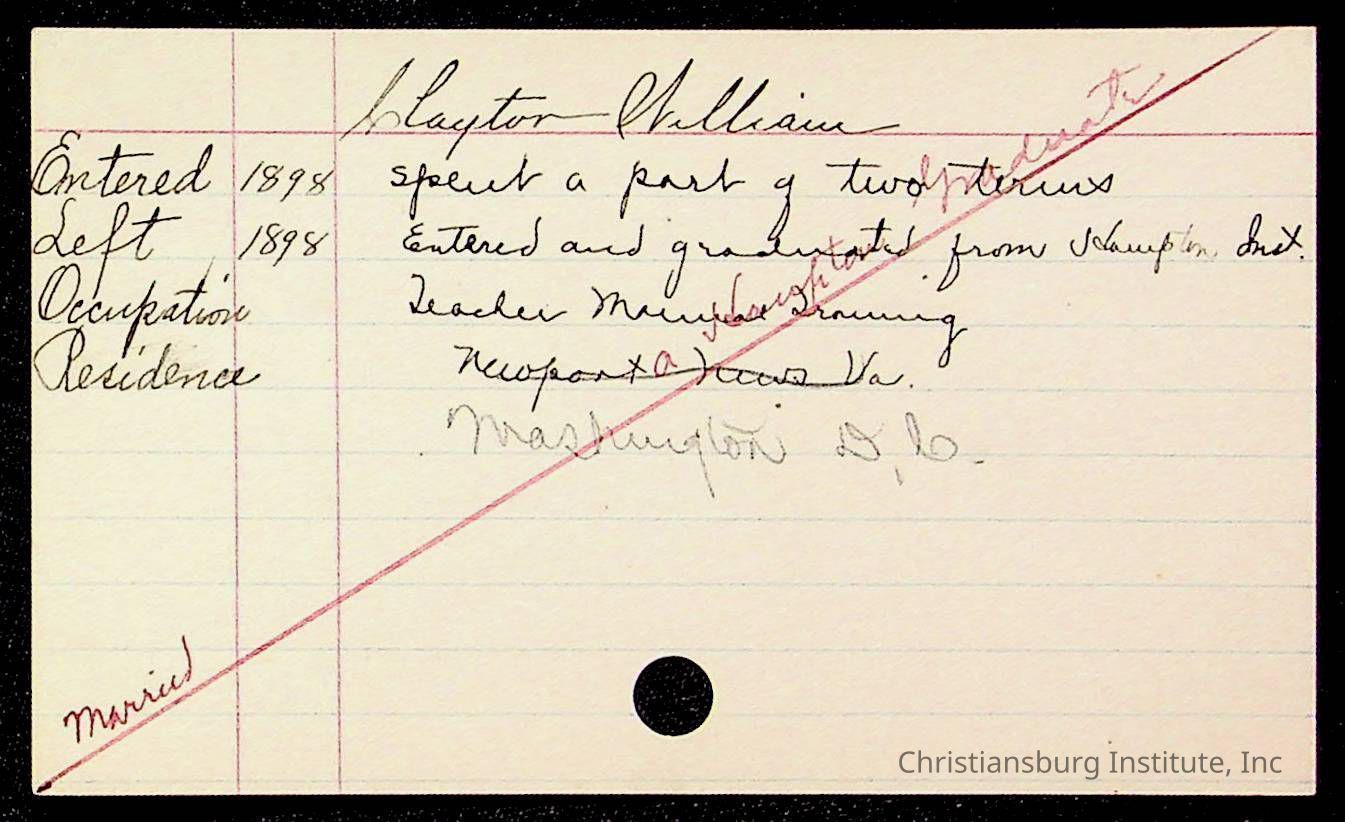 Clayton William
Entered 1898 spent a part of two terms
Left 1898 Entered and graduated from Hampton Inst.
Occupation Teacher Manual Training
Residence Newport News Va.
Washington D.C.
Married
a Hampton Graduate
Christiansburg Institute, Inc